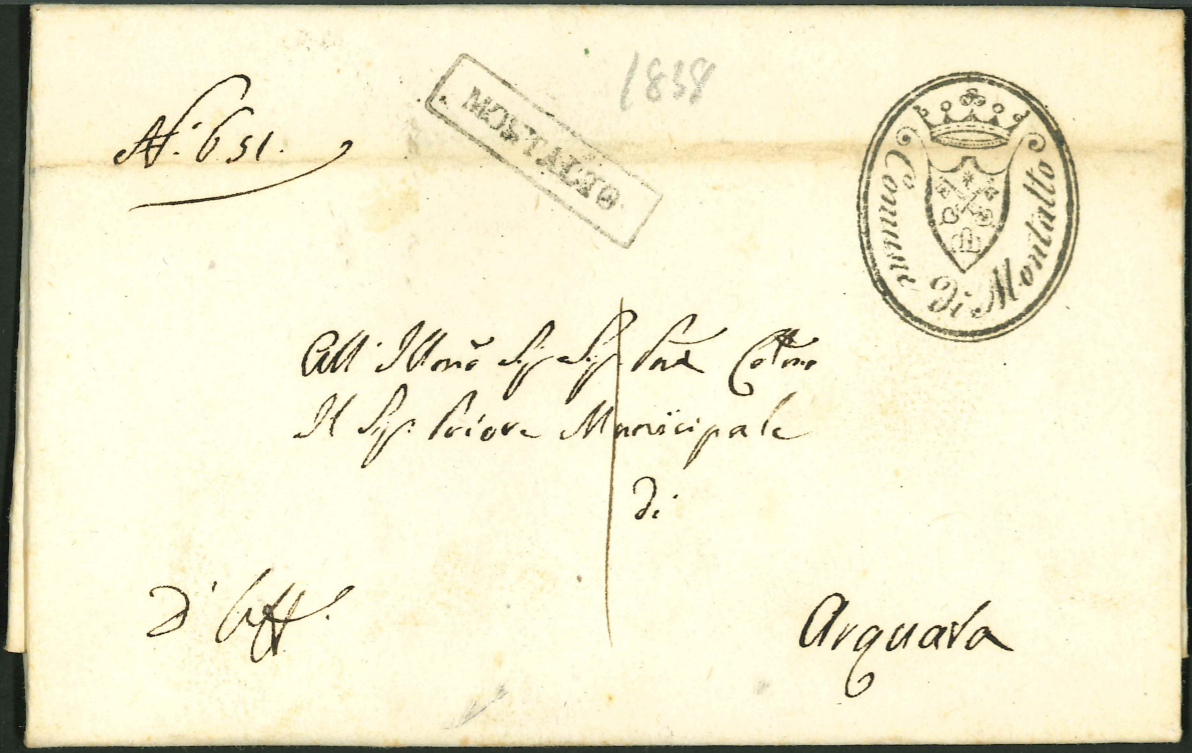 1838
N°. 651.
MOSTALTO
Comune di Montalto
All' Illmo Sig. Sig. Pne Colmo
Il Sig. Priore Municipale
di
D' Uff.
Arquata